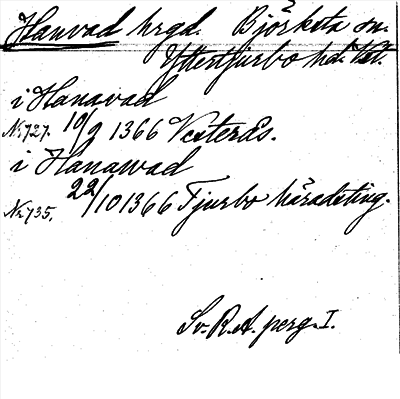 Hanvad hrgd. Björksta sn.
Yttertjurbo hd. Vstl.
i Hanavad
Nr 727. 10/9 1366 Vesterås.
i Hanawad
Nr 735. 22/10 1366 Tjurbo häradsting.
Sv. R.A. perg. I.